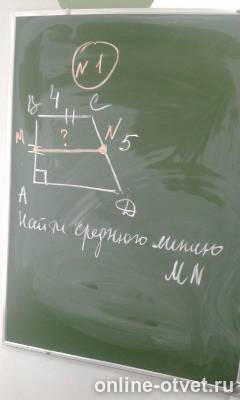 N 1
В 4 С
М ? N 5
А D
Найти среднюю линию
MN
online-otvet.ru